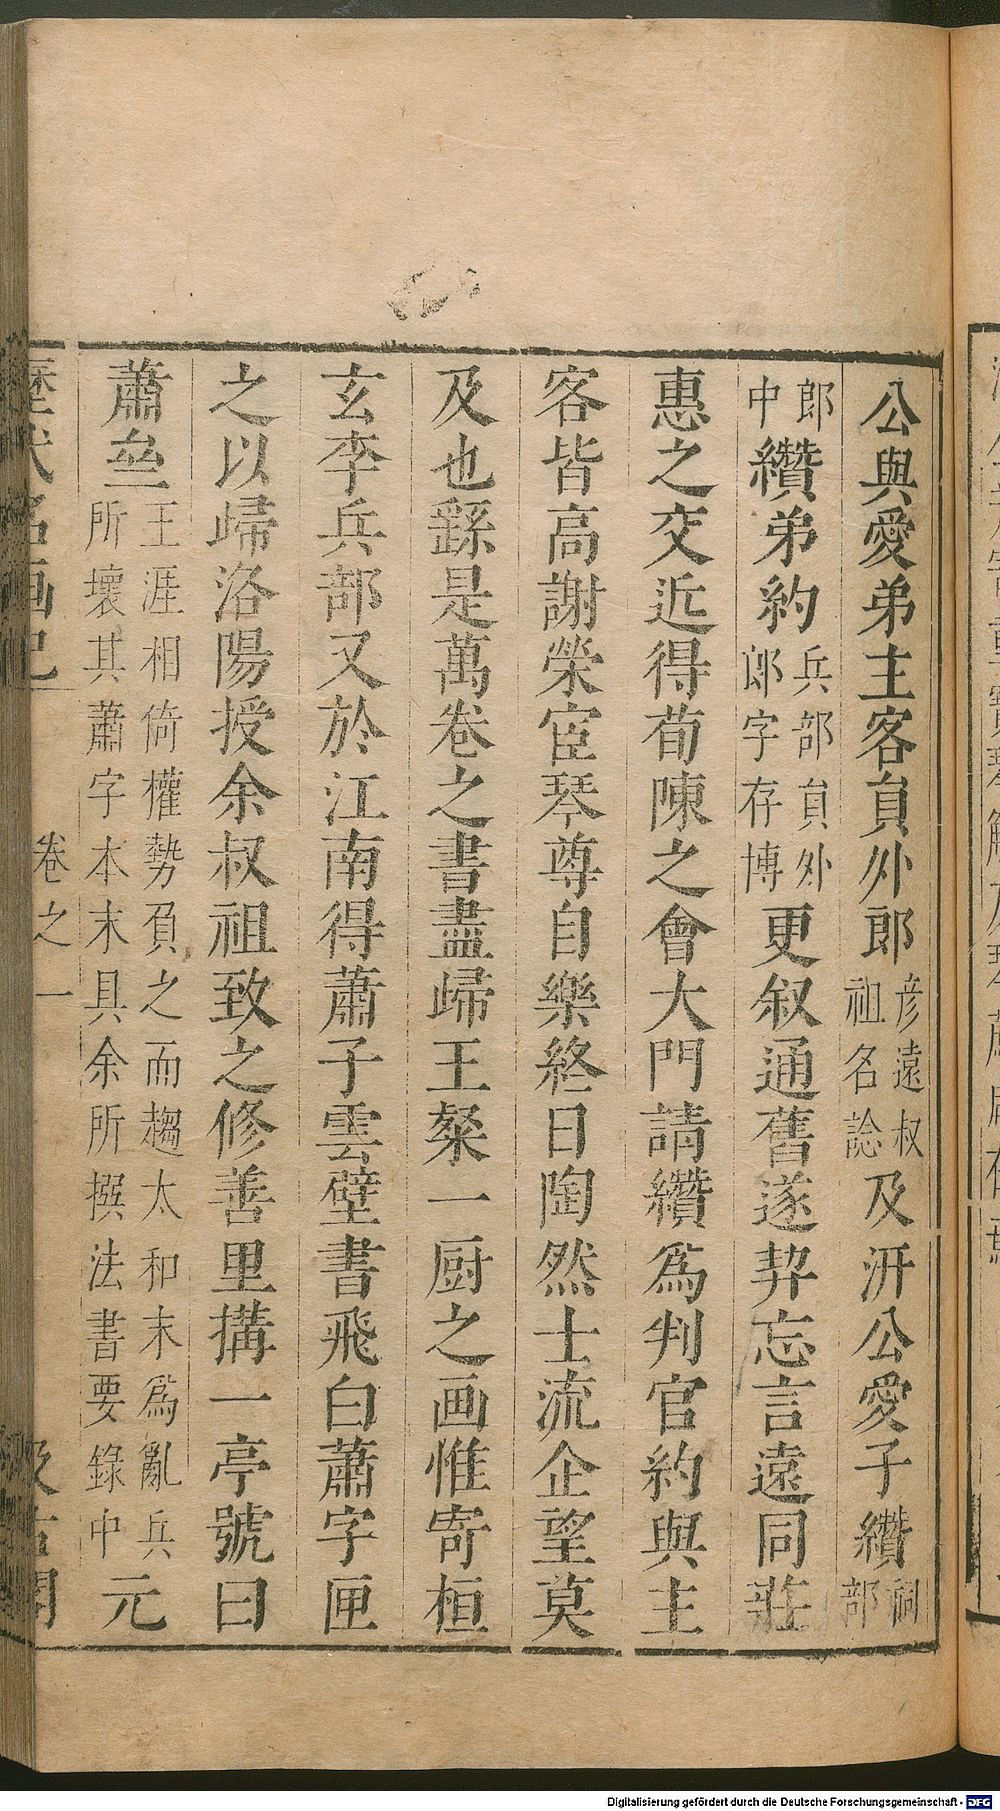 公與愛弟主客員外郎彥遠叔祖名諗及汧公愛子纘祠部
郎中纘弟約兵部員外郎字存博更叙通舊遂契忘言遠同莊
惠之交近得荀陳之會大門請纘爲判官約與主
客皆高謝榮宦琴尊自樂終日陶然士流企望莫
及也繇是萬卷之書盡歸王粲一厨之画惟寄桓
玄李兵部又於江南得蕭子雲壁書飛白蕭字匣
之以歸洛陽授余叔祖致之修善里搆一亭號曰
蕭亝王涯相倚權勢負之而趨太和末爲亂兵所壞其蕭字本末具余所撰法書要錄中元
歷代名画記
卷之一
汲古閣
Digitalisierung gefördert durch die Deutsche Forschungsgemeinschaft - DFG